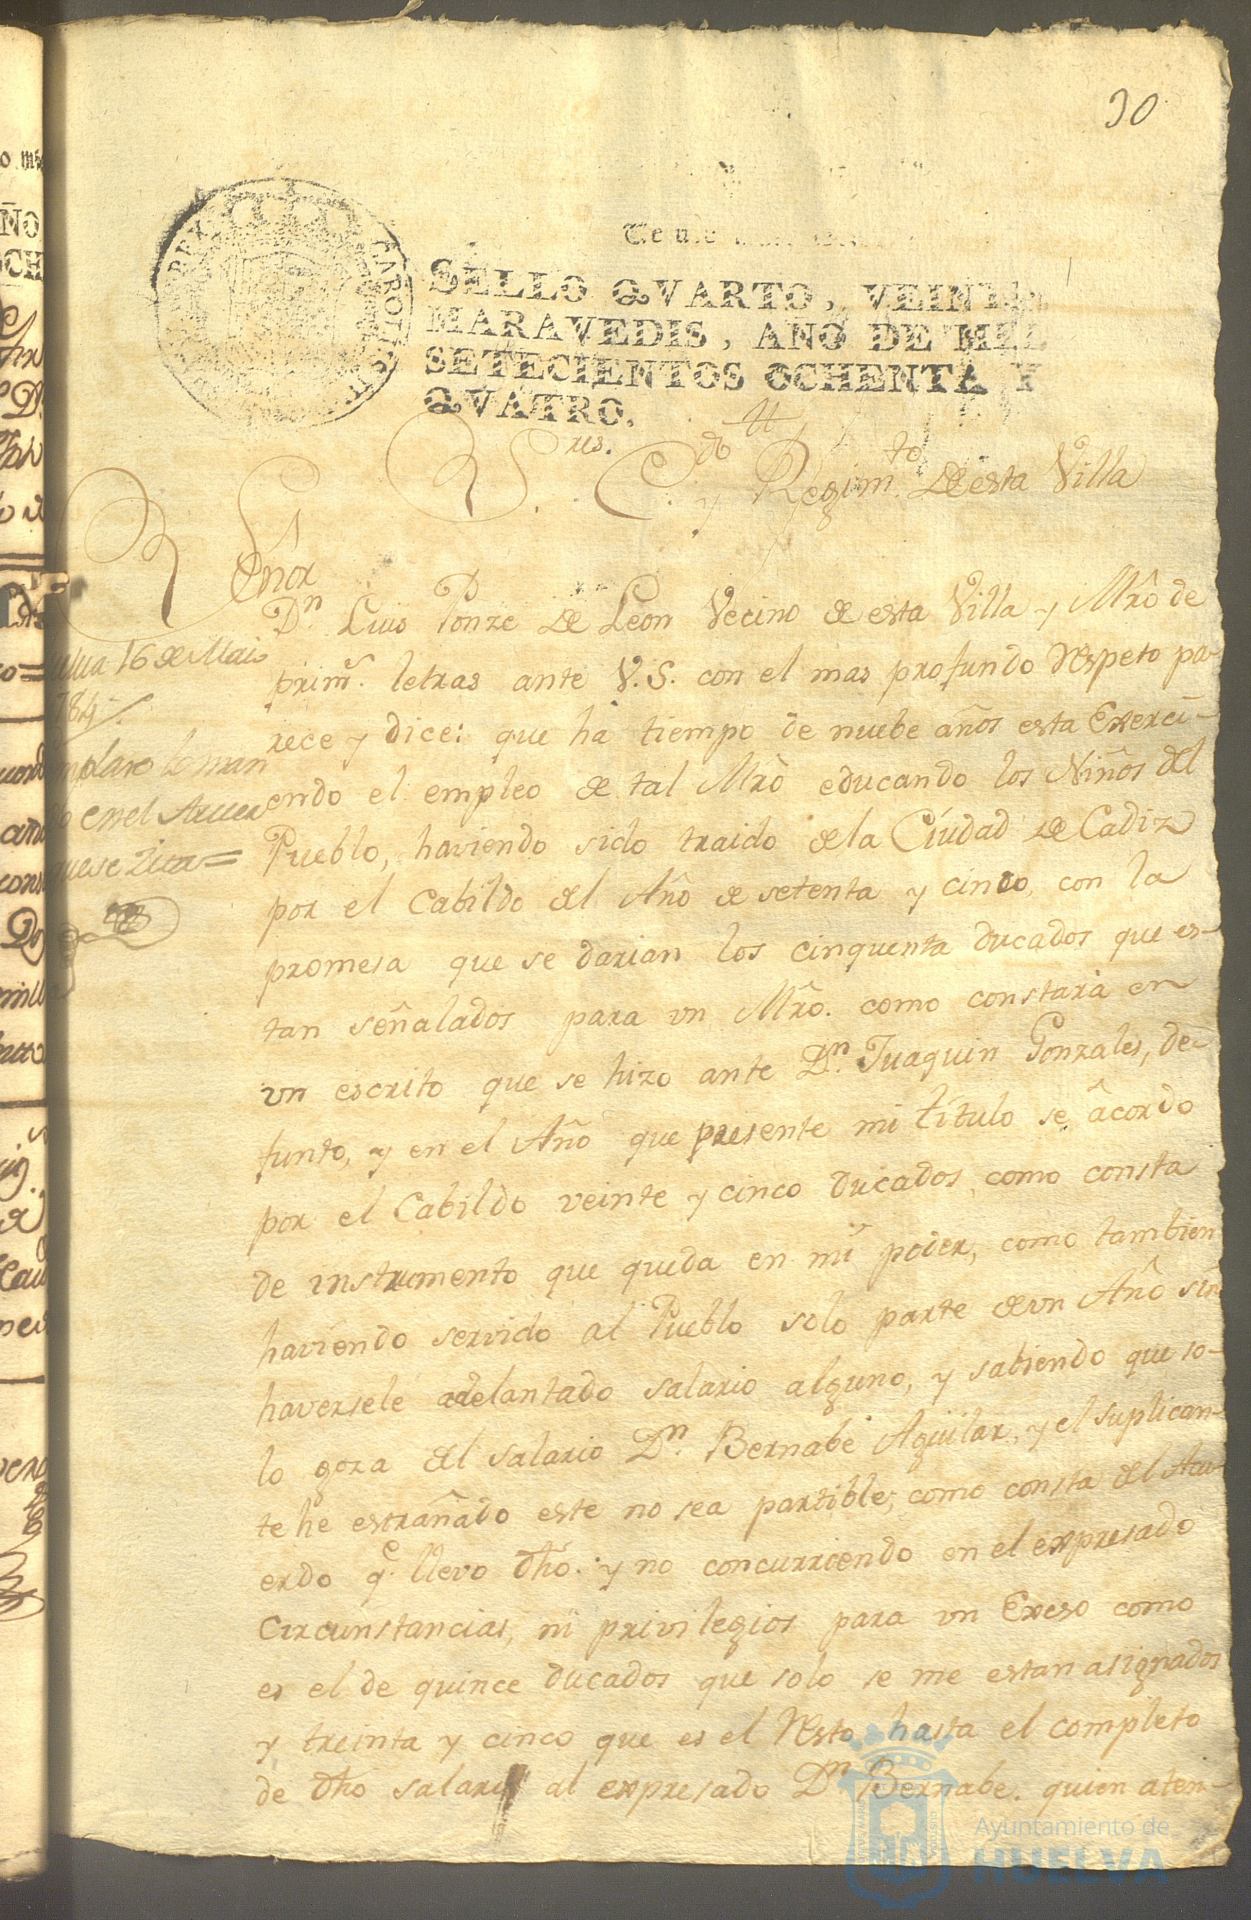 30
SELLO QVARTO, VEINTE
MARAVEDIS, AÑO DE MIL
SETECIENTOS OCHENTA Y
QVATRO.
Sres. C.do y Regim.to de esta Villa
Señor
Dn. Luis Ponze de Leon Vecino de esta Villa y Mrô de
prim.s letras ante V.S. con el mas profundo Respeto pa-
rece y dice: que ha tiempo de nuebe años esta Exerci-
endo el empleo de tal Mrô educando los Niños del
Pueblo, haviendo sido traido de la Ciudad de Cadiz
por el Cabildo del Año de setenta y cinco, con la
promesa que se darian los cinquenta ducados que es-
tan señalados para un Mrô. como constarà en
un escrito que se hizo ante Dn. Juaquin Gonzales, de-
funto, y en el Año que presente mi titulo se âcordo
por el Cabildo veinte y cinco ducados, como consta
de instrumento que queda en mi poder, como tambien
haviendo servido al Pueblo solo parte de un Año sin
haversele adelantado salario alguno, y sabiendo que so-
lo goza del salario Dn. Bernabe Aguilar, y el suplican-
te he estrañado este no sea partible, como consta del Acu-
erdo q.e llevo dhô. y no concurriendo en el expresado
circunstancias, ni privilegios para un Exceso como
es el de quince ducados que solo se me estan asignados
y treinta y cinco que es el Resto hasta el completo
de dhô salario al expresado Dn. Bernabe. quien aten-
16 de Maio
784
en el Acuer
que se Zita=
Ayuntamiento de
HUELVA